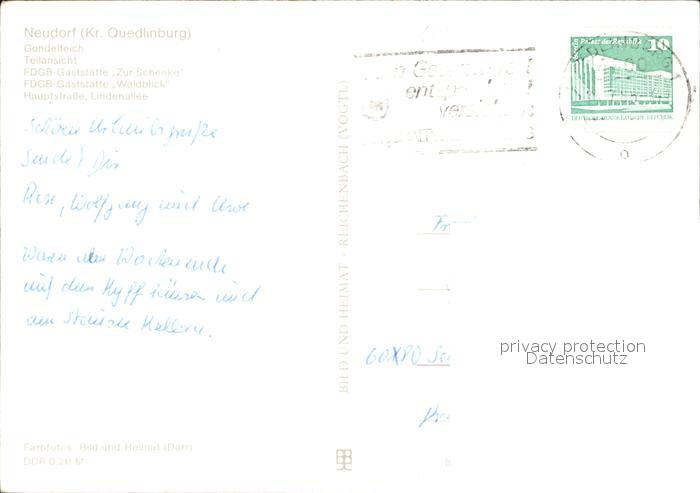 Neudorf (Kr. Quedlinburg)
Gondelteich
Teilansicht
FDGB-Gaststätte „Zur Schenke"
FDGB-Gaststätte „Waldblick"
Hauptstraße, Lindenallee
Schöne Urlaubsgrüße
sendet Dir
Rose, Wolfgang und Uwe
Waren am Wochenende
auf dem Kyffhäuser und
am Stausee Kelbra.
BILD UND HEIMAT · REICHENBACH (VOGTL
Palast der Republik
10
privacy protection
Datenschutz
Farbfotos: Bild und Heimat (Darr)
DDR 0,20 M